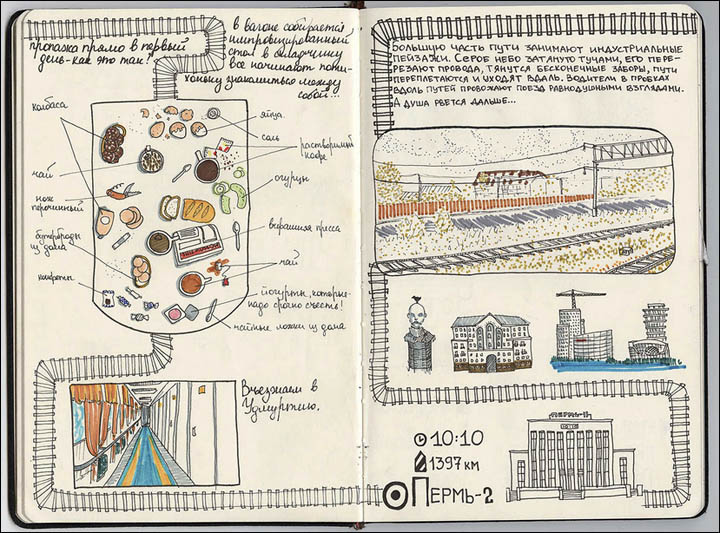 пропажа прямо в первый
день - как это так!
в вагоне собирается
импровизированный
стол в складчину
все начинают пони-
хоньку знакомиться между
собой...
колбаса
чай
нож
перочинный
бутерброды
из дома
конфеты
яйца
соль
растворимый
кофе!
огурцы
вчерашняя пресса
чай
йогурты, которые
надо срочно съесть!
чайные ложки из дома
Въезжаем в
Удмуртию.
Большую часть пути занимают индустриальные
пейзажи. Серое небо затянуто тучами, его пере-
резают провода, тянутся бесконечные заборы, пути
переплетаются и уходят вдаль. Водители в пробках
вдоль путей провожают поезд равнодушными взглядами.
А душа рвется дальше...
10:10
1397 км
Пермь-2
ПЕРМЬ-II